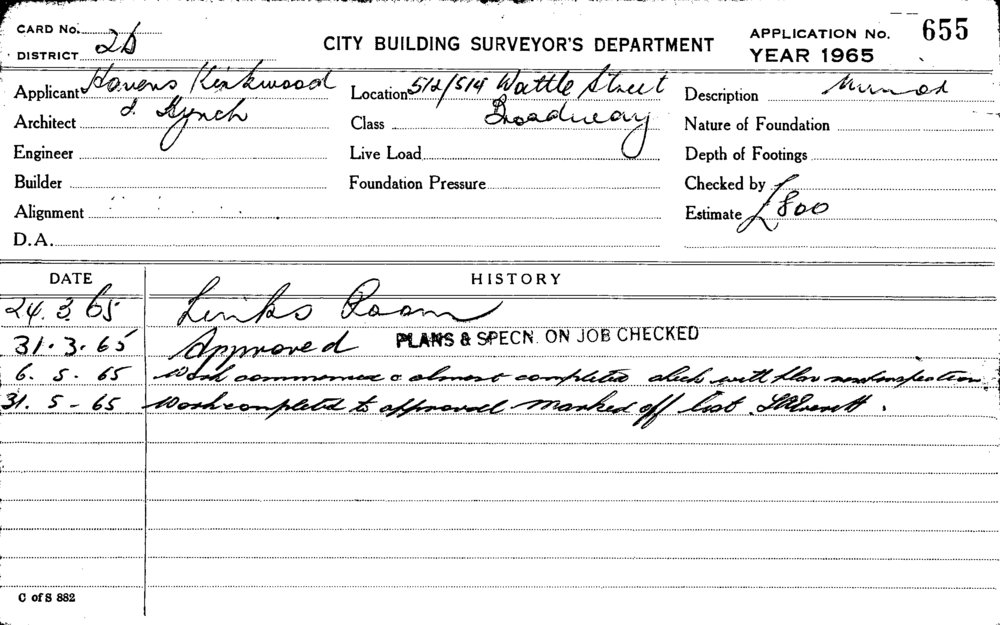 CARD No.
DISTRICT 2D
CITY BUILDING SURVEYOR'S DEPARTMENT
APPLICATION No. 655
YEAR 1965
Applicant Havens Kirkwood
& Lynch
Location 512/514 Wattle Street
Broadway
Description
Architect
Class
Nature of Foundation
Engineer
Live Load
Depth of Footings
Builder
Foundation Pressure
Checked by
Alignment
Estimate £800
D.A.
DATE HISTORY
24.3.65 Links Room
31.3.65 Approved PLANS & SPECN. ON JOB CHECKED
6.5.65 Work commenced & almost completed check with plan next inspection
31.5-65 Work completed to approval marked off list
C of S 882